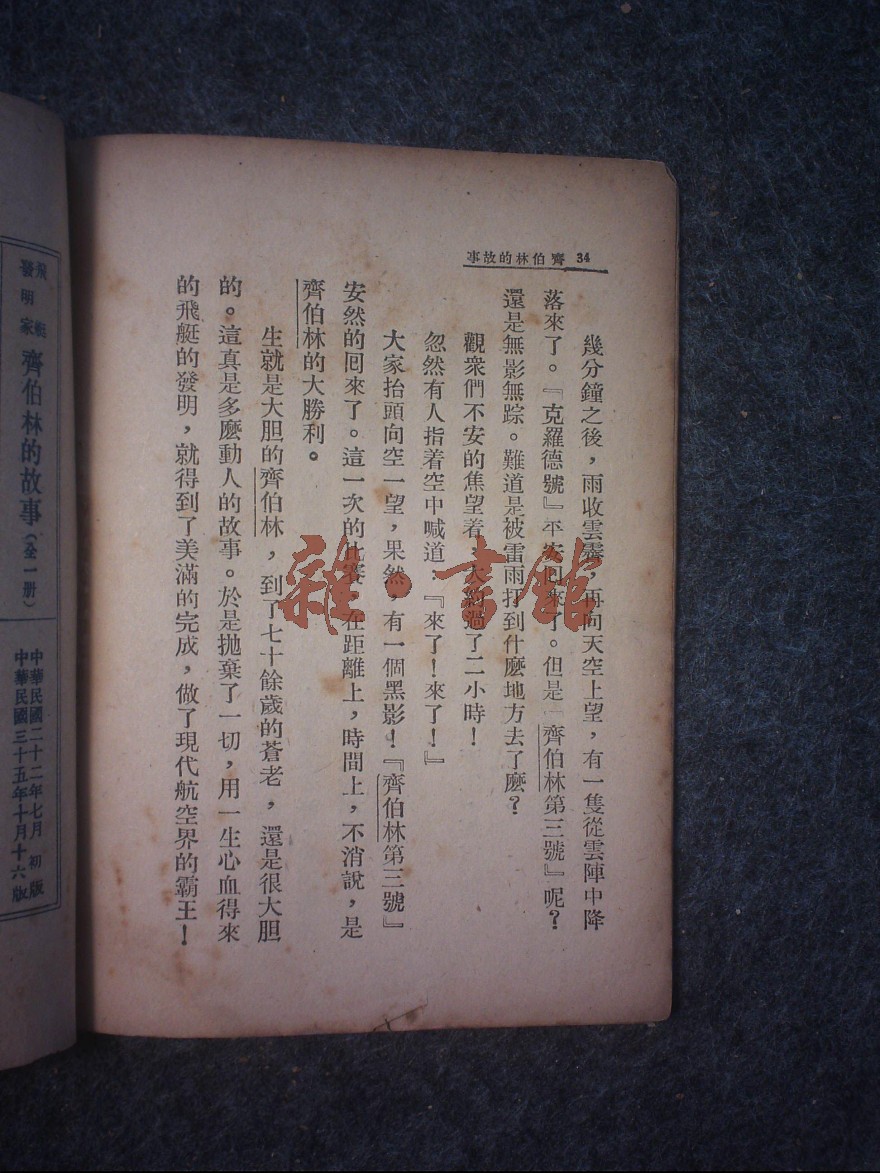 34 齊伯林的故事
幾分鐘之後，雨收雲霽，再向天空上望，有一隻從雲陣中降
落來了。『克羅德號』平安回來了。但是『齊伯林第三號』呢？
還是無影無踪。難道是被雷雨打到什麼地方去了麼？
觀衆們不安的焦望着，大約過了二小時！
忽然有人指着空中喊道：『來了！來了！』
大家抬頭向空一望，果然，有一個黑影！『齊伯林第三號』
安然的囘來了。這一次的比賽，在距離上，時間上，不消說，是
齊伯林的大勝利。
生就是大胆的齊伯林，到了七十餘歲的蒼老，還是很大胆
的。這真是多麼動人的故事。於是拋棄了一切，用一生心血得來
的飛艇的發明，就得到了美滿的完成，做了現代航空界的霸王！
飛艇
發明家
齊伯林的故事（全一册）
中華民國二十二年七月初版
中華民國三十五年十月十六版
雜·書館